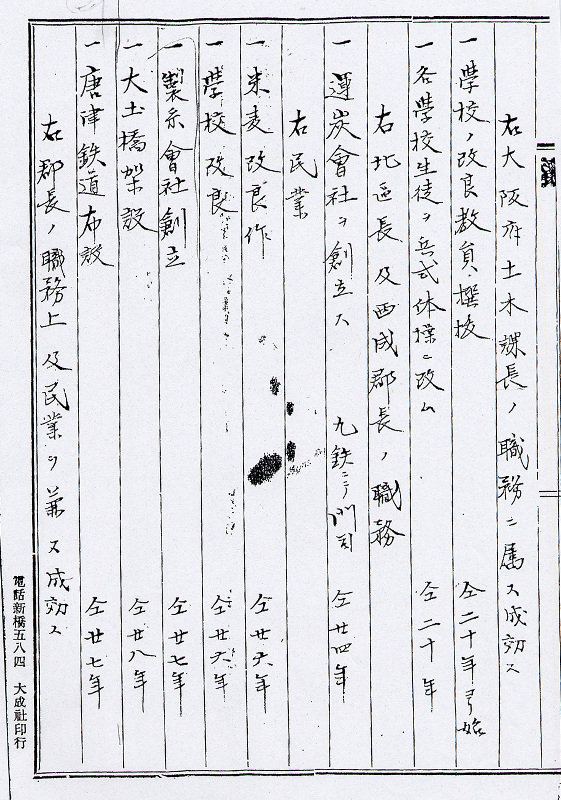 右大阪府土木課長ノ職務ニ属ス成効ス
一學校ノ改良教員撰抜 仝二十年ヨリ始
一各學校生徒ヲ兵式体操ニ改ム 仝二十年
右北區長及西成郡長ノ職務
一運炭會社ヲ創立ス 九鉄ニテ門司 仝廿四年
右民業
一米麦改良作 仝廿六年
一學校改良 仝廿六年
一製糸會社創立 仝廿七年
一大土橋架設 仝廿八年
一唐津鉄道布設 仝廿七年
右郡長ノ職務上及民業ヲ兼ス成効ス
電話新橋五八四 大成社印行